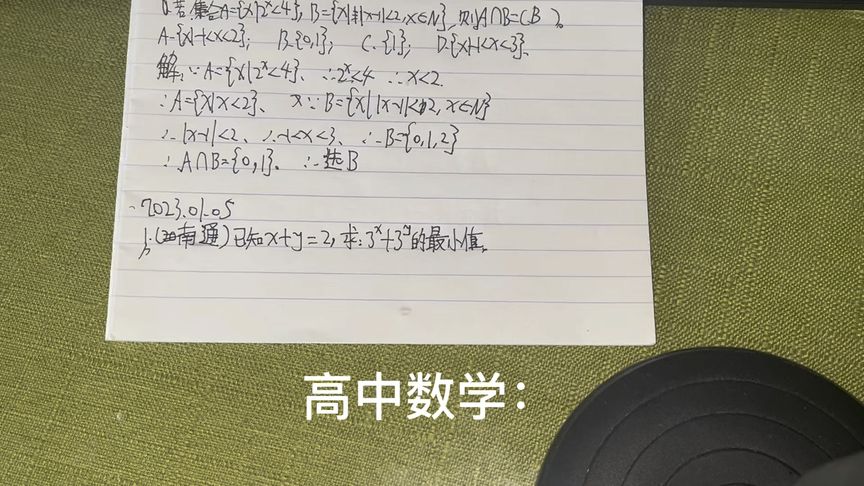 若集合A={x|2ˣ<4}, B={x||x-1|<2,x∈N},则A∩B=(B).
A.{x|-1<x<2}; B.{0,1}; C.{1}; D.{x|-1<x<3}.
解:∵A={x|2ˣ<4}、∴2ˣ<4 ∴x<2.
∴A={x|x<2}、又∵B={x||x-1|<2,x∈N}
∴|x-1|<2、∴-1<x<3、∴B={0,1,2}
∴A∩B={0,1}、∴选B
2023.01.05
1.(南通)已知x+y=2,求:3ˣ+3ʸ的最小值。
高中数学: